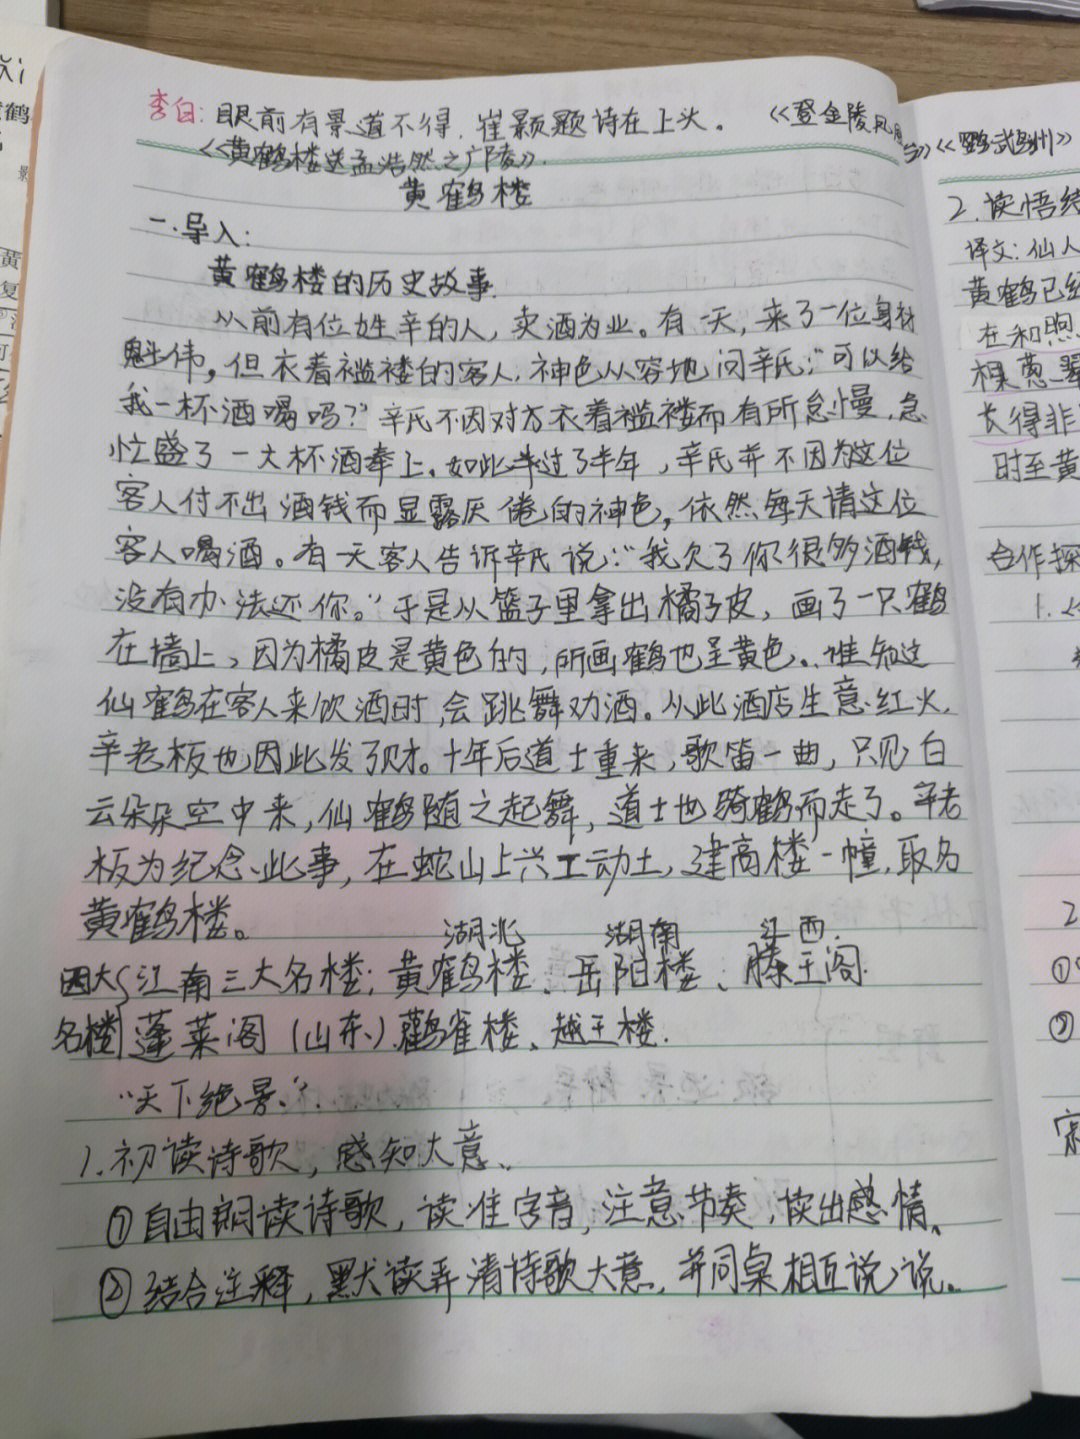 李白:眼前有景道不得,崔颢题诗在上头。 《登金陵凤凰台》《鹦鹉洲》
《黄鹤楼送孟浩然之广陵》.
黄鹤楼
一.导入:
黄鹤楼的历史故事.
从前有位姓辛的人,卖酒为业。有一天,来了一位身材
魁伟,但衣着褴褛的客人,神色从容地问辛氏:“可以给
我一杯酒喝吗?”辛氏不因对方衣着褴褛而有所怠慢,急
忙盛了一大杯酒奉上。如此过了半年,辛氏并不因为这位
客人付不出酒钱而显露厌倦的神色,依然每天请这位
客人喝酒。有一天客人告诉辛氏说:“我欠了你很多酒钱,
没有办法还你。”于是从篮子里拿出橘子皮,画了一只鹤
在墙上,因为橘皮是黄色的,所画鹤也呈黄色。谁知这
仙鹤在客人来饮酒时,会跳舞劝酒。从此酒店生意红火,
辛老板也因此发了财。十年后道士重来,歌笛一曲,只见白
云朵朵空中来,仙鹤随之起舞,道士也骑鹤而走了。辛老
板为纪念此事,在蛇山上兴工动土,建高楼一幢,取名
黄鹤楼。
湖北 湖南 江西.
四大 江南三大名楼:黄鹤楼、岳阳楼、滕王阁.
名楼 蓬莱阁(山东)鹳雀楼、越王楼.
“天下绝景”.
1.初读诗歌,感知大意、
①自由朗读诗歌,读准字音,注意节奏,读出感情、
②结合注释,默读弄清诗歌大意,并同桌相互说说。
2.读悟结
译文:仙人
黄鹤已经
在和煦
长得非
时至黄
合作探
1.
2
①
②
黄
复